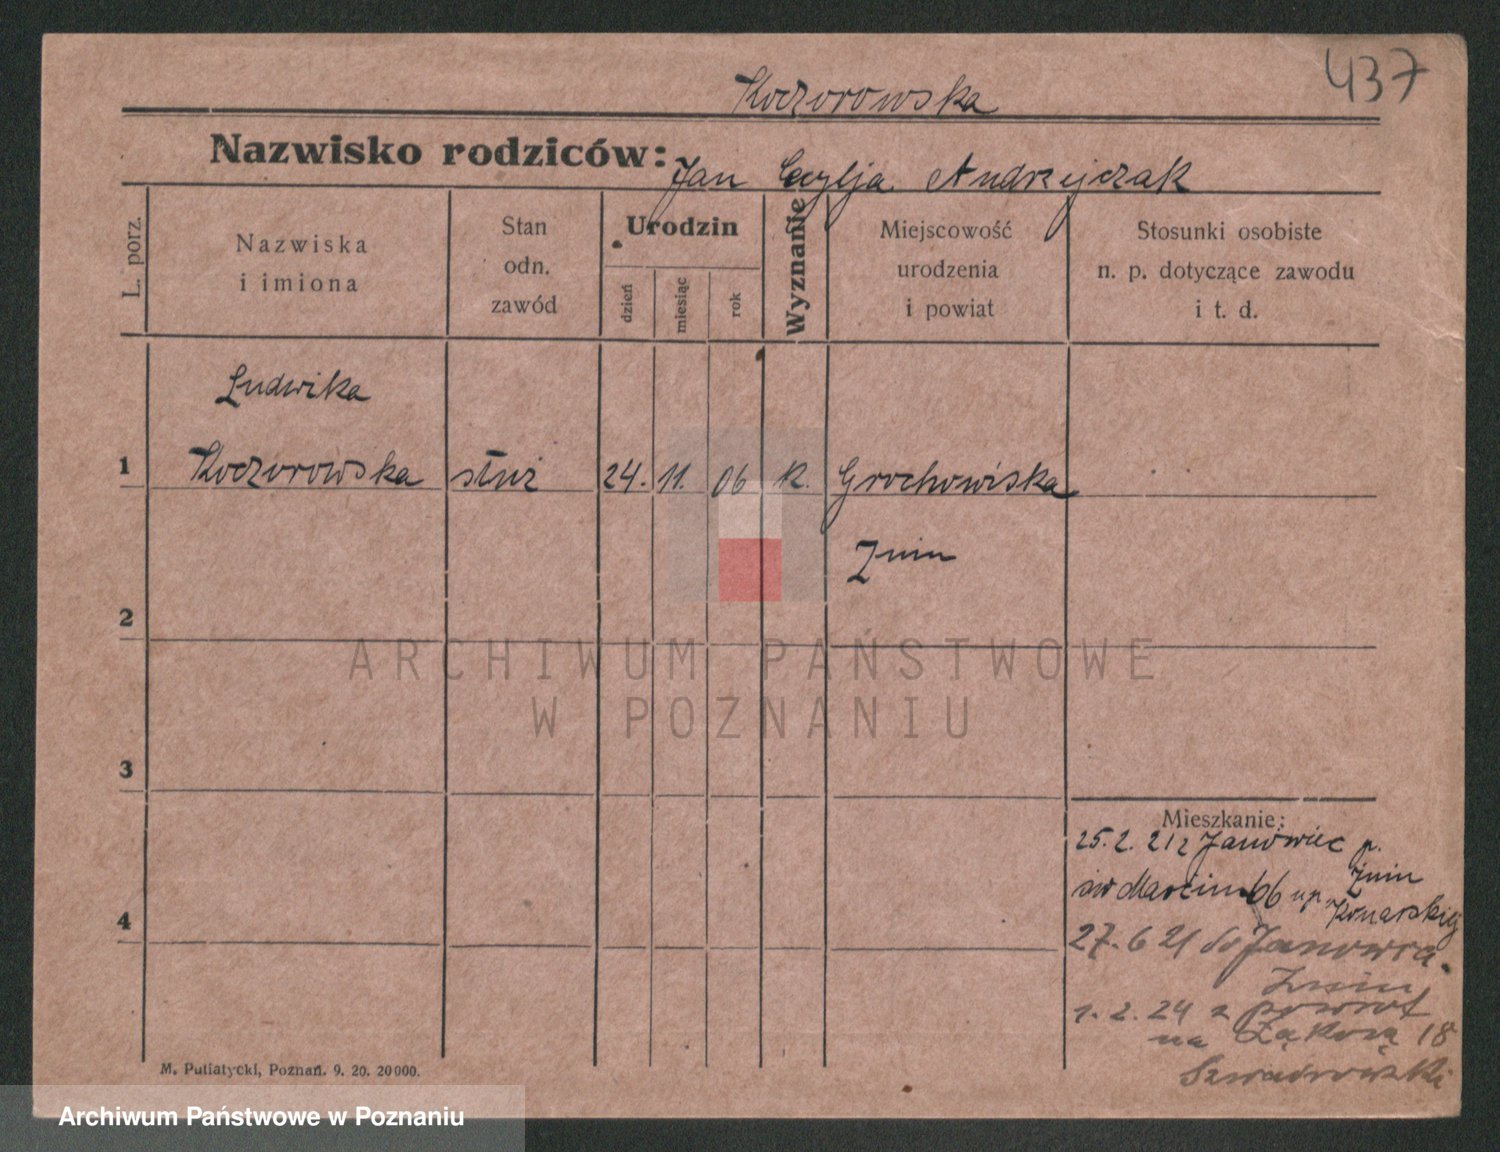 437
Koczorowska
Nazwisko rodziców: Jan Cecylja Andrzejczak
L. porz.
Nazwiska
i imiona
Stan
odn.
zawód
Urodzin
dzień
miesiąc
rok
Wyznanie
Miejscowość
urodzenia
i powiat
Stosunki osobiste
n. p. dotyczące zawodu
i t. d.
Ludwika
1 Koczorowska służ 24. 11. 06 k. Grochowiska
Żnin
2
ARCHIWUM PAŃSTWOWE
W POZNANIU
3
Mieszkanie:
25. 2. 21 z Janówiec p.
Żnin
św Marcin 66 up. Konarskiej
4
27. 6 21 do Janowca
Żnin
1. 2. 24 z powrot
na Łąkową 18
M. Putiatycki, Poznań. 9. 20. 20000.
Archiwum Państwowe w Poznaniu